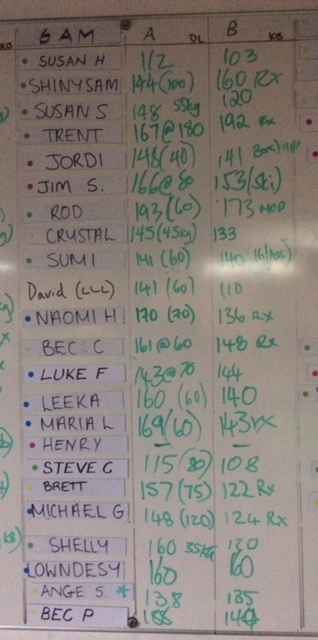 6 AM A DL B KB
SUSAN H 112 103
SHINYSAM 144(100) 160 Rx
SUSAN S 148 55kg 120
TRENT 167@180 192 Rx
JORDI 148(40) 141
JIM S. 166@80 153(Ski)
ROD 193(60) 173 MOD
CRYSTAL 145(45kg) 133
SUMI 141 (60) 140
David (LLL) 141 (60) 118
NAOMI H 170 (70) 136 Rx
BEC. C 161@60 148 Rx
LUKE F 143@70 144
LEEKA 160 (60) 140
MARIA L 169(60) 143rx
HENRY — —
STEVE C 115(80) 108
BRETT 157(75) 122 Rx
MICHAEL G 148(120) 124 Rx
SHELLY 160 55kg 130
LOWNDESY 160 160
ANGE S * 138 135
BEC P 188